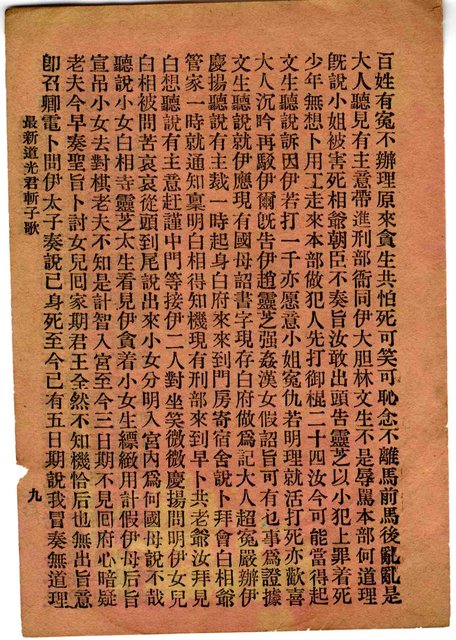 百姓有冤不辦理原來貪生共怕死可笑可恥念不離馬前馬後亂亂是
大人聽見有主意帶進刑部衙同伊大胆林文生不是辱罵本部何道理
既說小姐被害死相爺朝臣不奏旨汝敢出頭告靈芝以小犯上罪着死
少年無想卜用工走來本部做犯人先打御棍二十四汝今可能當得起
文生聽說訴因伊若打一千亦愿意小姐冤仇若明理就活打死亦歡喜
大人沉吟再駁伊爾既告伊趙靈芝强姦漢女假詔旨可有乜事為證據
文生聽說就伊應現有國母詔書字現存白府做為記大人超冤嚴辦伊
慶揚聽說有主裁一時起身白府來來到門房寄宿舍說卜拜會白相爺
管家一時就通知稟明白相得知機現有刑部來到早卜共老爺汝拜見
白想聽說有主意赶謹中門等接伊二人對坐笑微微慶揚問明伊女兒
白相被問苦哀哀從頭到尾說出來小女分明入宮內為何國母說不哉
聽說小女白相寺靈芝太生看見伊貪着小女生縹緻用計假伊母后旨
宣吊小女去對棋老夫不知是計智入宮至今三日期不見回府心暗疑
老夫今早奏聖旨卜討女兒回家期君王全然不知機恰后也無出旨意
卽召卿電卜問伊太子奏說已身死至今已有五日期說我冒奏無道理
最新道光君斬子歌
九